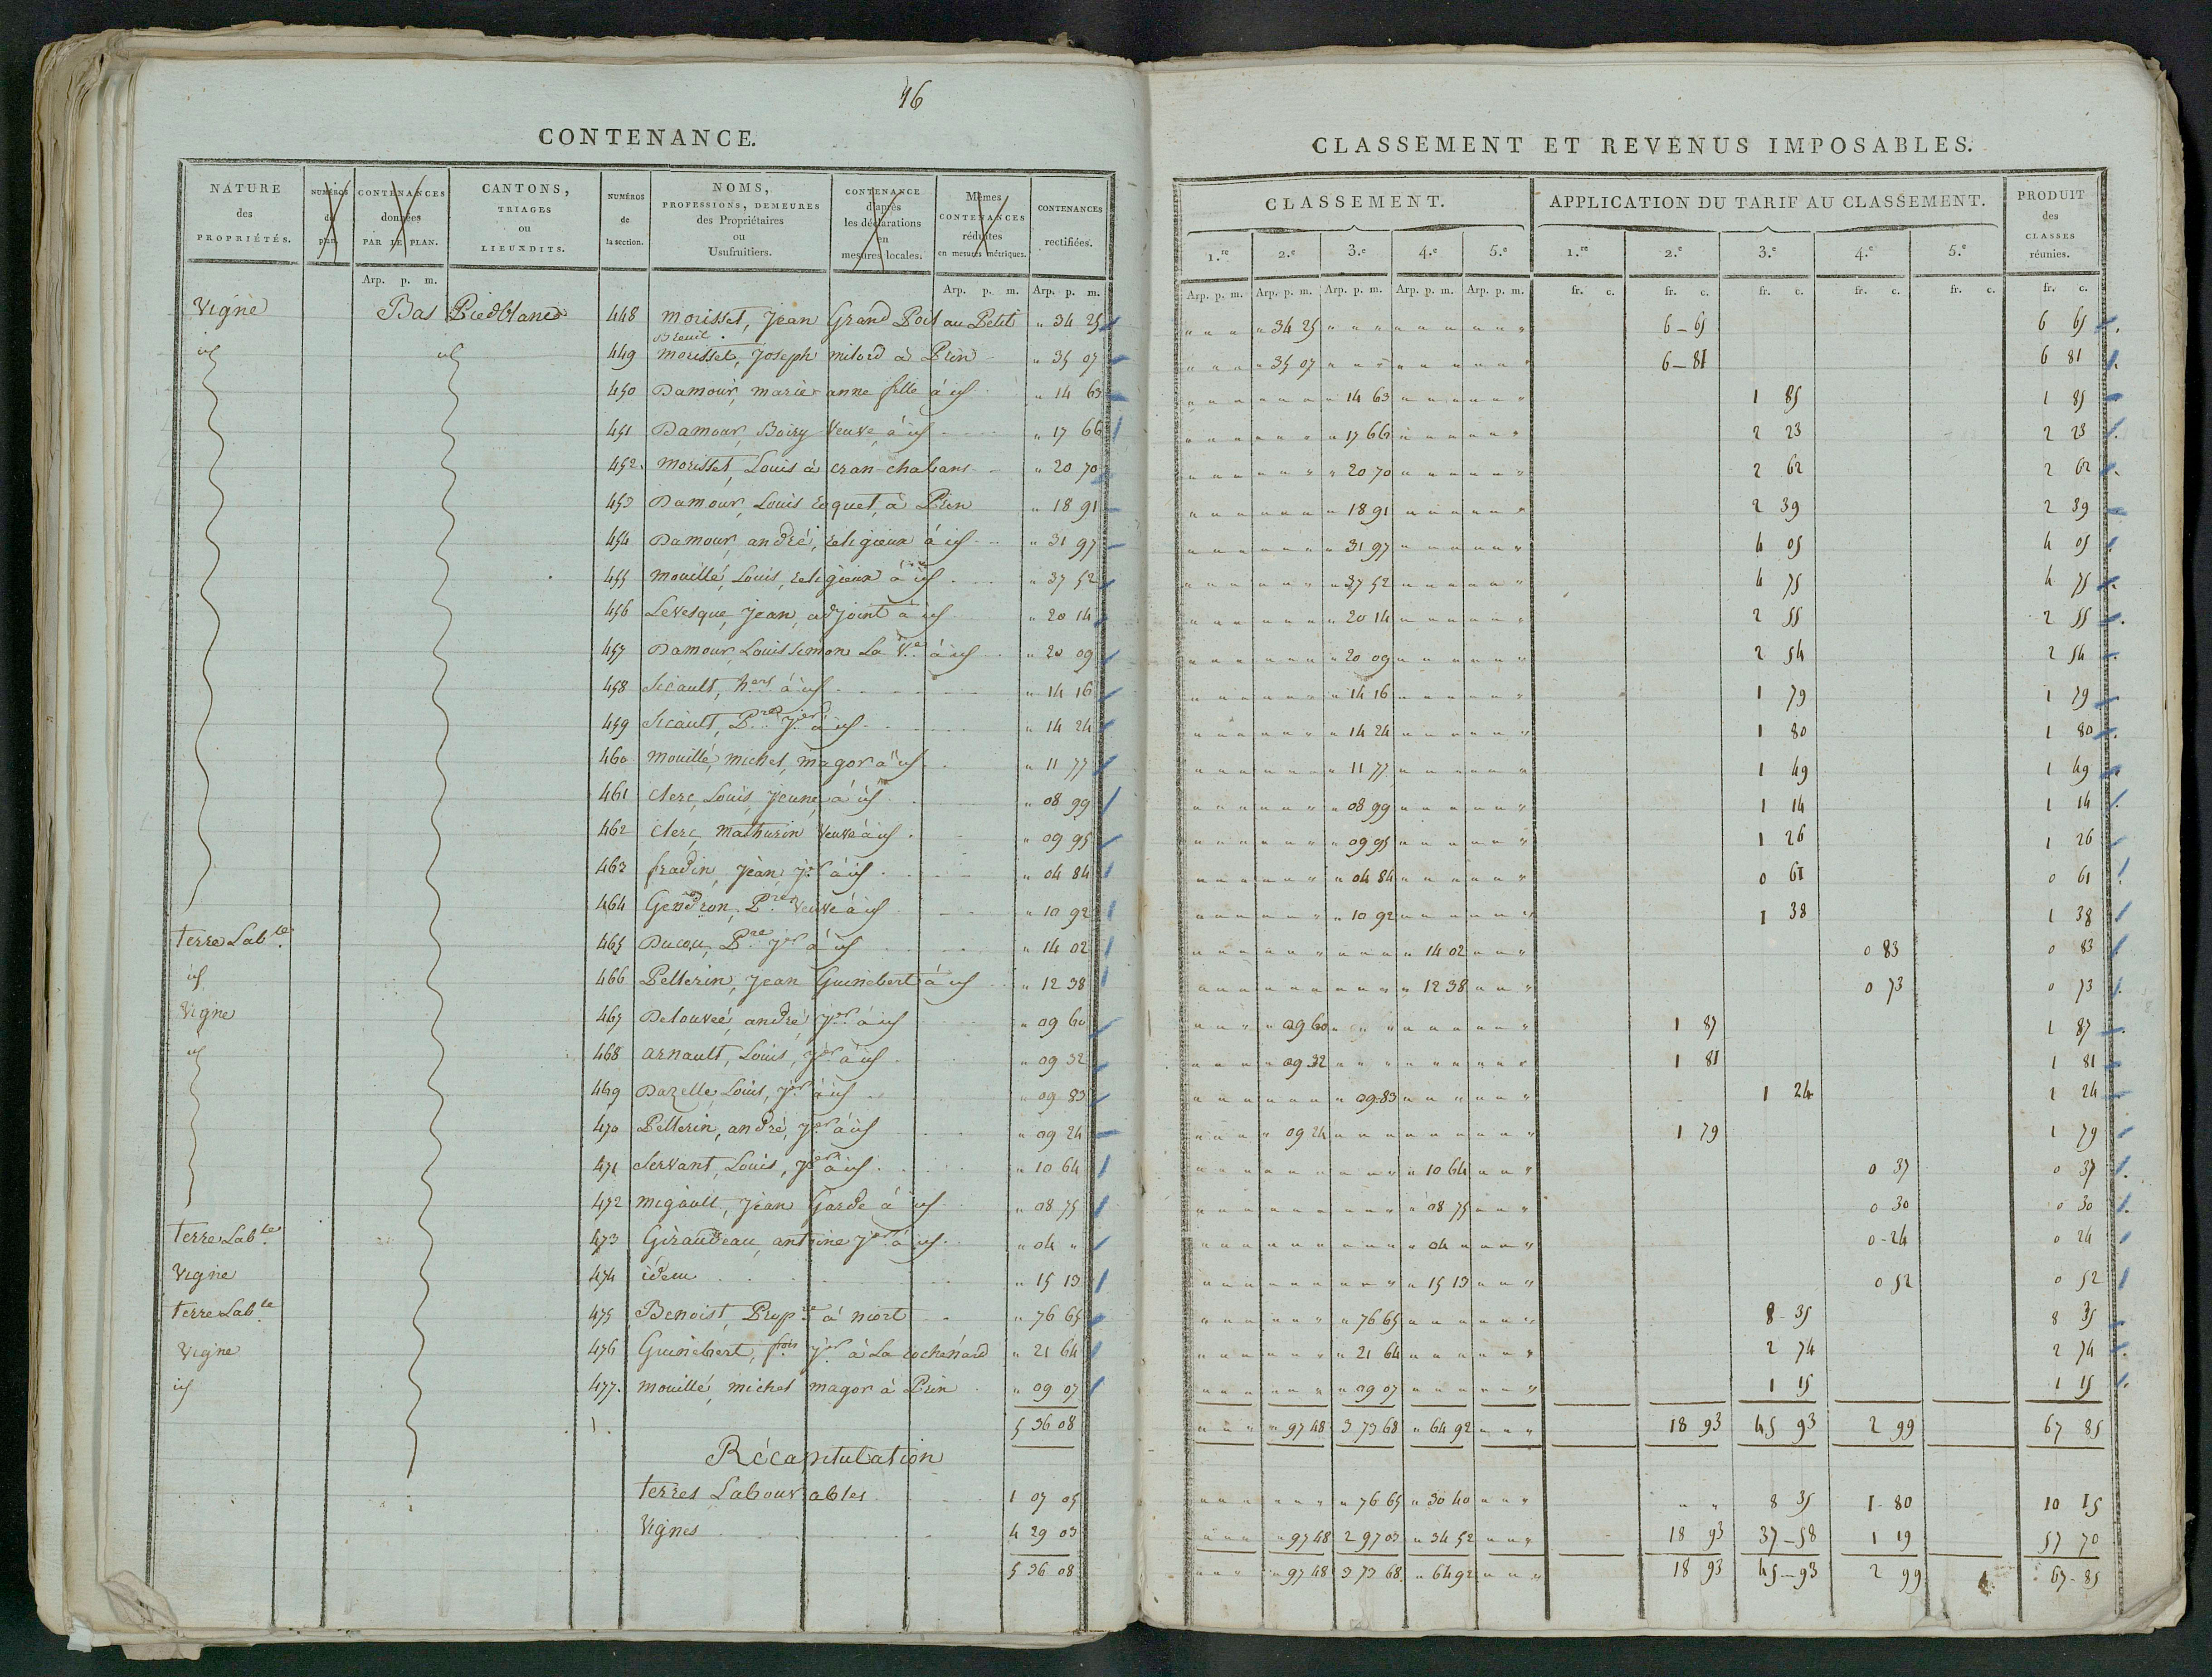 46
CONTENANCE.
NATURE des PROPRIÉTÉS. NUMÉROS du plan. CONTENANCES données PAR LE PLAN. CANTONS, TRIAGES ou LIEUXDITS. NUMÉROS de la section. NOMS, PROFESSIONS, DEMEURES des Propriétaires ou Usufruitiers. CONTENANCE d'après les déclarations en mesures locales. Mêmes CONTENANCES réduites en mesures métriques. CONTENANCES rectifiées.
Arp. p. m. Arp. p. m. Arp. p. m.
Vigne Bas Piedblanc 448 morisset, Jean Grand Port au Petit Breuil. " 34 25
id id 449 morisset, Joseph milord à Prin " 35 07
450 Damour, marie anne fille à id " 14 63
451 Damour, Boizy Veuve, à id " 17 66
452. morisset, Louis à cran-chabans " 20 70
453 Damour, Louis Coquet, à Prin " 18 91
454 Damour, andré, religieux à id " 31 97
455 mouillé, Louis, religieux à id " 37 52
456 Levesque, Jean, adjoint à id " 20 14
457 Damour, Louis Simon La Ve à id " 20 09
458 Sicault, hers à id " 14 16
459 Sicault, Pre Jer à id " 14 24
460 mouillé, michel, magor à id " 11 77
461 Clerc, Louis, Jeune, à id " 08 99
462 Clerc, mathurin Veuve à id " 09 95
463 fradin, Jean, Jer à id " 04 84
464 Gendron, Pre Veuve à id " 10 92
terre Lable 465 Ducou, Pre Jer à id " 14 02
id 466 Pellerin, Jean Guinebert à id " 12 38
Vigne 467 Delouveé, andré Jer à id " 09 60
id 468 arnault, Louis, Jer à id " 09 32
469 Dazelle, Louis, Jer à id " 09 83
470 Pellerin, andré, Jer à id " 09 24
471 Servant, Louis, Jer à id " 10 64
472 migault, Jean Garde à id " 08 75
terre Lable 473 Giraudeau, antoine Jer à id " 04 "
Vigne 474 idem " 15 13
terre Lable 475 Benoist, Propre à niort " 76 65
Vigne 476 Guinebert, fois Jer à La cochenard " 21 64
id 477. mouillé, michel magor à Prin " 09 07
5 36 08
Récapitulation
terres Labourables 1 07 05
Vignes 4 29 03
5 36 08
CLASSEMENT ET REVENUS IMPOSABLES.
CLASSEMENT. APPLICATION DU TARIF AU CLASSEMENT. PRODUIT des CLASSES réunies.
1.re 2.e 3.e 4.e 5.e 1.re 2.e 3.e 4.e 5.e
Arp. p. m. Arp. p. m. Arp. p. m. Arp. p. m. Arp. p. m. fr. c. fr. c. fr. c. fr. c. fr. c. fr. c.
" 34 25 6 – 65 6 65
" 35 07 6 – 81 6 81
" 14 63 1 85 1 85
" 17 66 2 23 2 23
" 20 70 2 62 2 62
" 18 91 2 39 2 39
" 31 97 4 05 4 05
" 37 52 4 75 4 75
" 20 14 2 55 2 55
" 20 09 2 54 2 54
" 14 16 1 79 1 79
" 14 24 1 80 1 80
" 11 77 1 49 1 49
" 08 99 1 14 1 14
" 09 95 1 26 1 26
" 04 84 0 61 0 61
" 10 92 1 38 1 38
" 14 02 0 83 0 83
" 12 38 0 73 0 73
" 09 60 1 87 1 87
" 09 32 1 81 1 81
" 09 83 1 24 1 24
" 09 24 1 79 1 79
" 10 64 0 37 0 37
" 08 75 0 30 0 30
" 04 " 0 - 24 0 24
" 15 13 0 52 0 52
" 76 65 8 - 35 8 35
" 21 64 2 74 2 74
" 09 07 1 15 1 15
" 97 48 3 73 68 " 64 92 18 93 45 93 2 99 67 85
" 76 65 " 30 40 " " 8 35 1 - 80 10 15
" 97 48 2 97 03 " 34 52 18 93 37 – 58 1 19 57 70
" 97 48 3 73 68 " 64 92 18 93 45 – 93 2 99 67 - 85